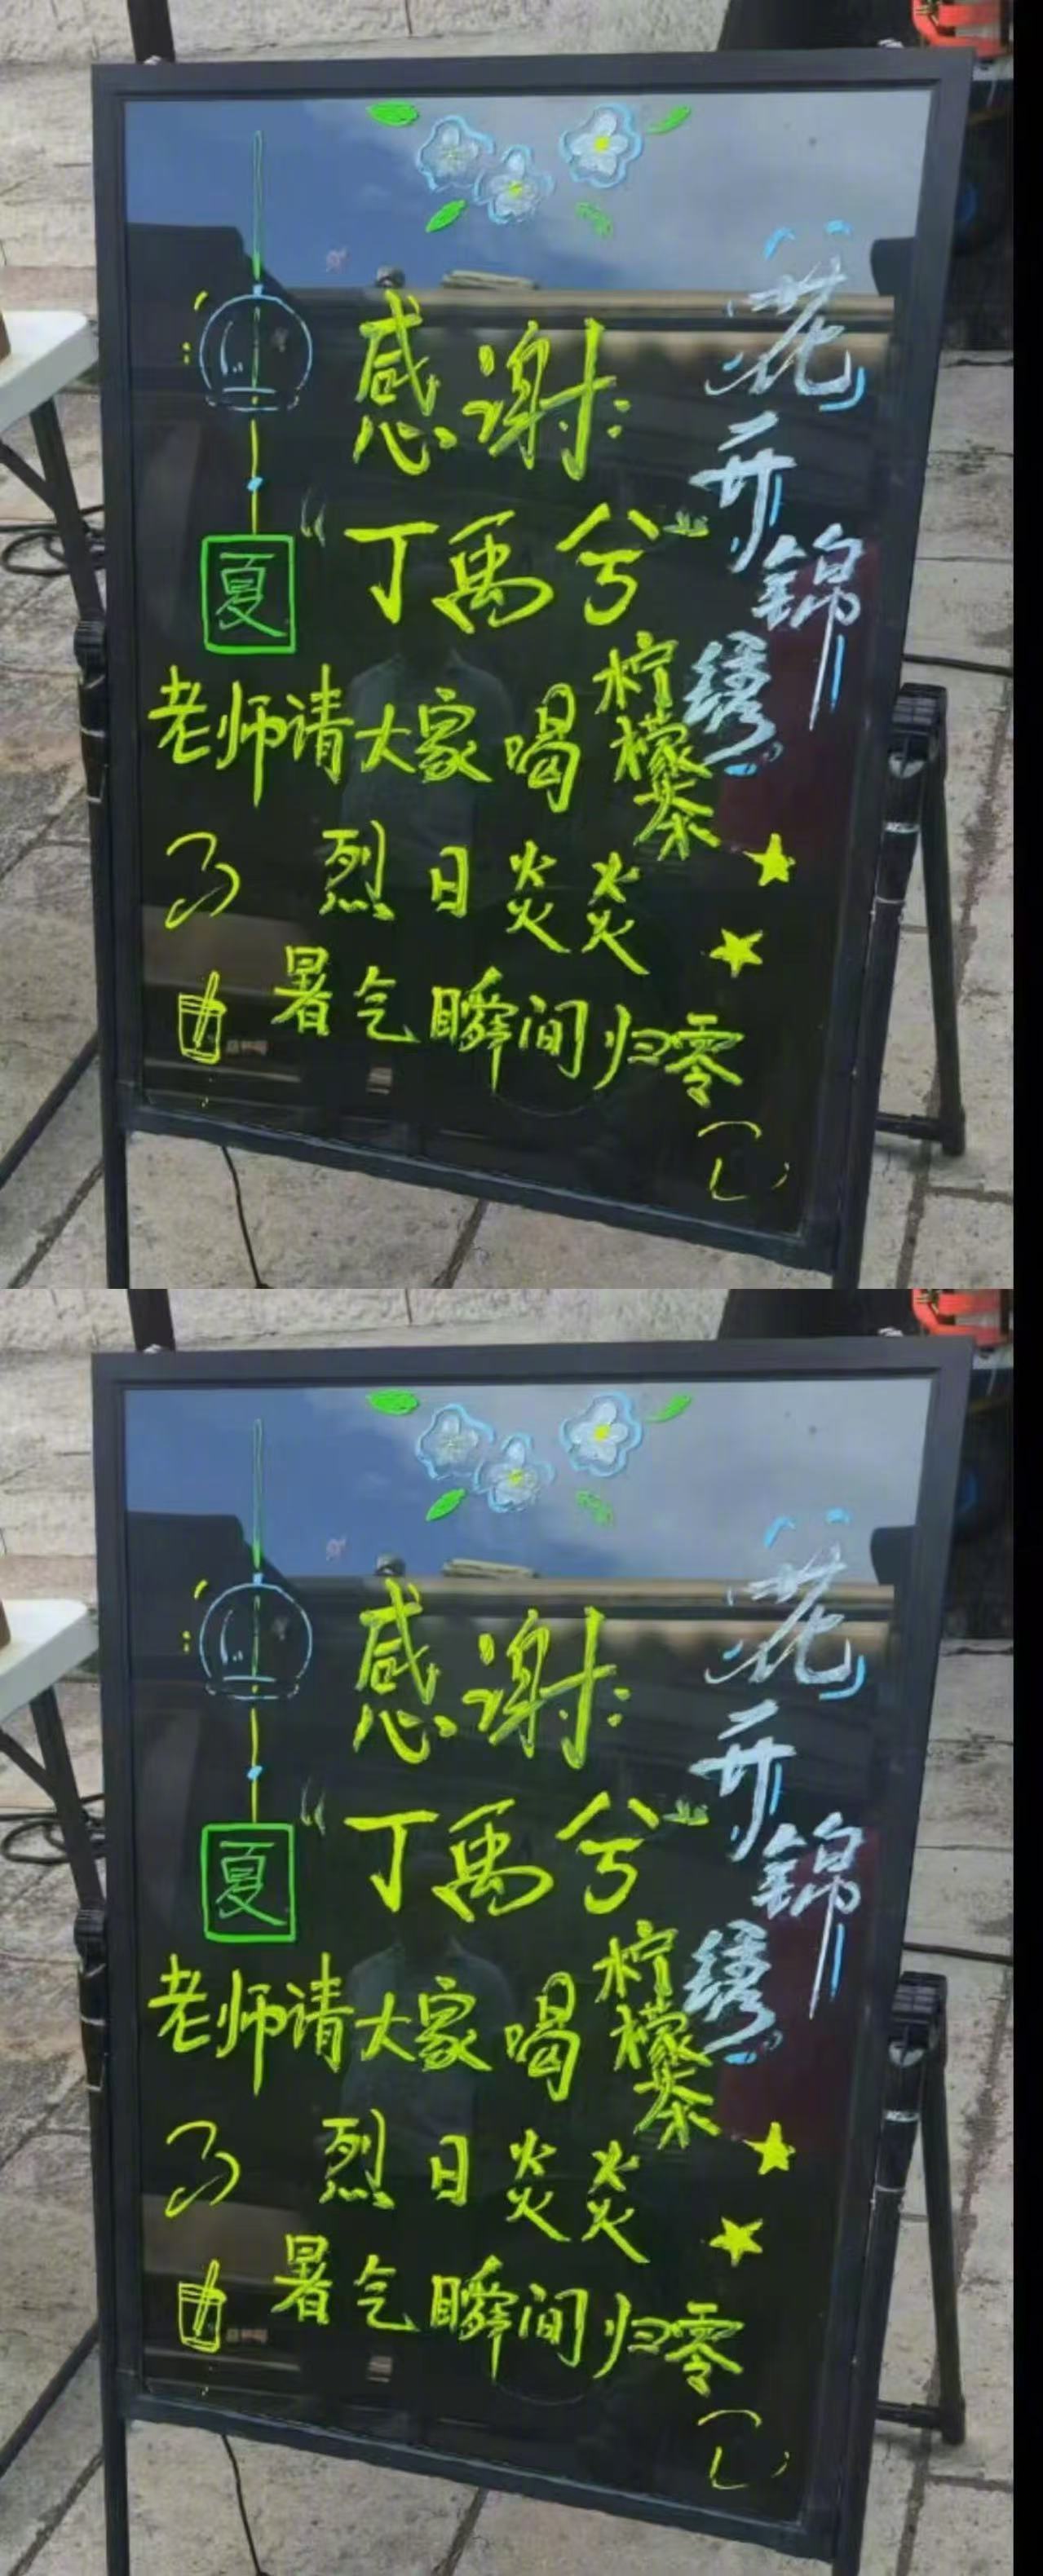 感谢:
"丁禹兮"
老师请大家喝柠檬茶
了 烈日炎炎
暑气瞬间归零
花开锦绣
夏
感谢:
"丁禹兮"
老师请大家喝柠檬茶
了 烈日炎炎
暑气瞬间归零
花开锦绣
夏